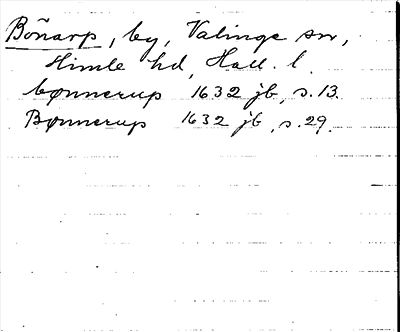 Boñarp, by, Valinge sn,
Himle hd, Hall. l.
bønnerup 1632 jb, s. 13.
Bønnerup 1632 jb, s. 29.